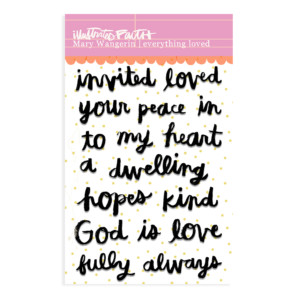 illustrated FAITH
Mary Wangerin | everything loved
invited loved
your peace in
to my heart
a dwelling
hopes kind
God is love
fully always